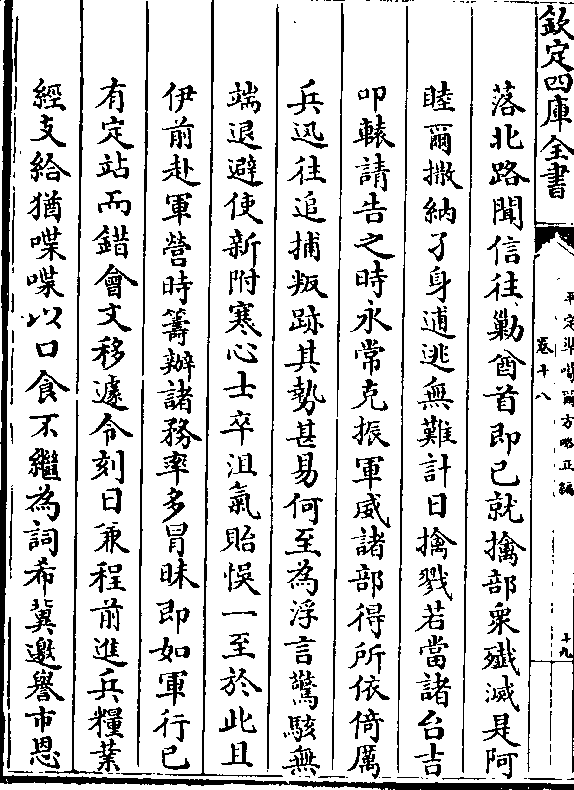 欽定四庫全書
平定準噶爾方略正編
卷十八
十九
落北路聞信往勦酋首即已就擒部衆殱滅是阿
睦爾撒納孑身逋逃無難計日擒戮若當諸台吉
叩轅請告之時永常克振軍威諸部得所依倚厲
兵迅往追捕叛跡其勢甚易何至為浮言驚駭無
端退避使新附寒心士卒沮氣貽悞一至於此且
伊前赴軍營時籌辦諸務率多冒昧即如軍行已
有定站而錯會文移遽令刻日兼程前進兵糧業
經支給猶喋喋以口食不繼為詞希冀邀譽市恩